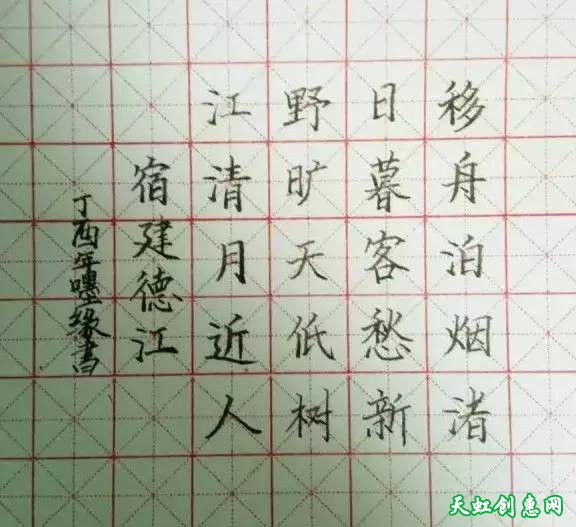 移舟泊烟渚
日暮客愁新
野旷天低树
江清月近人
宿建德江
丁酉年嘿缘书
天虹创意网